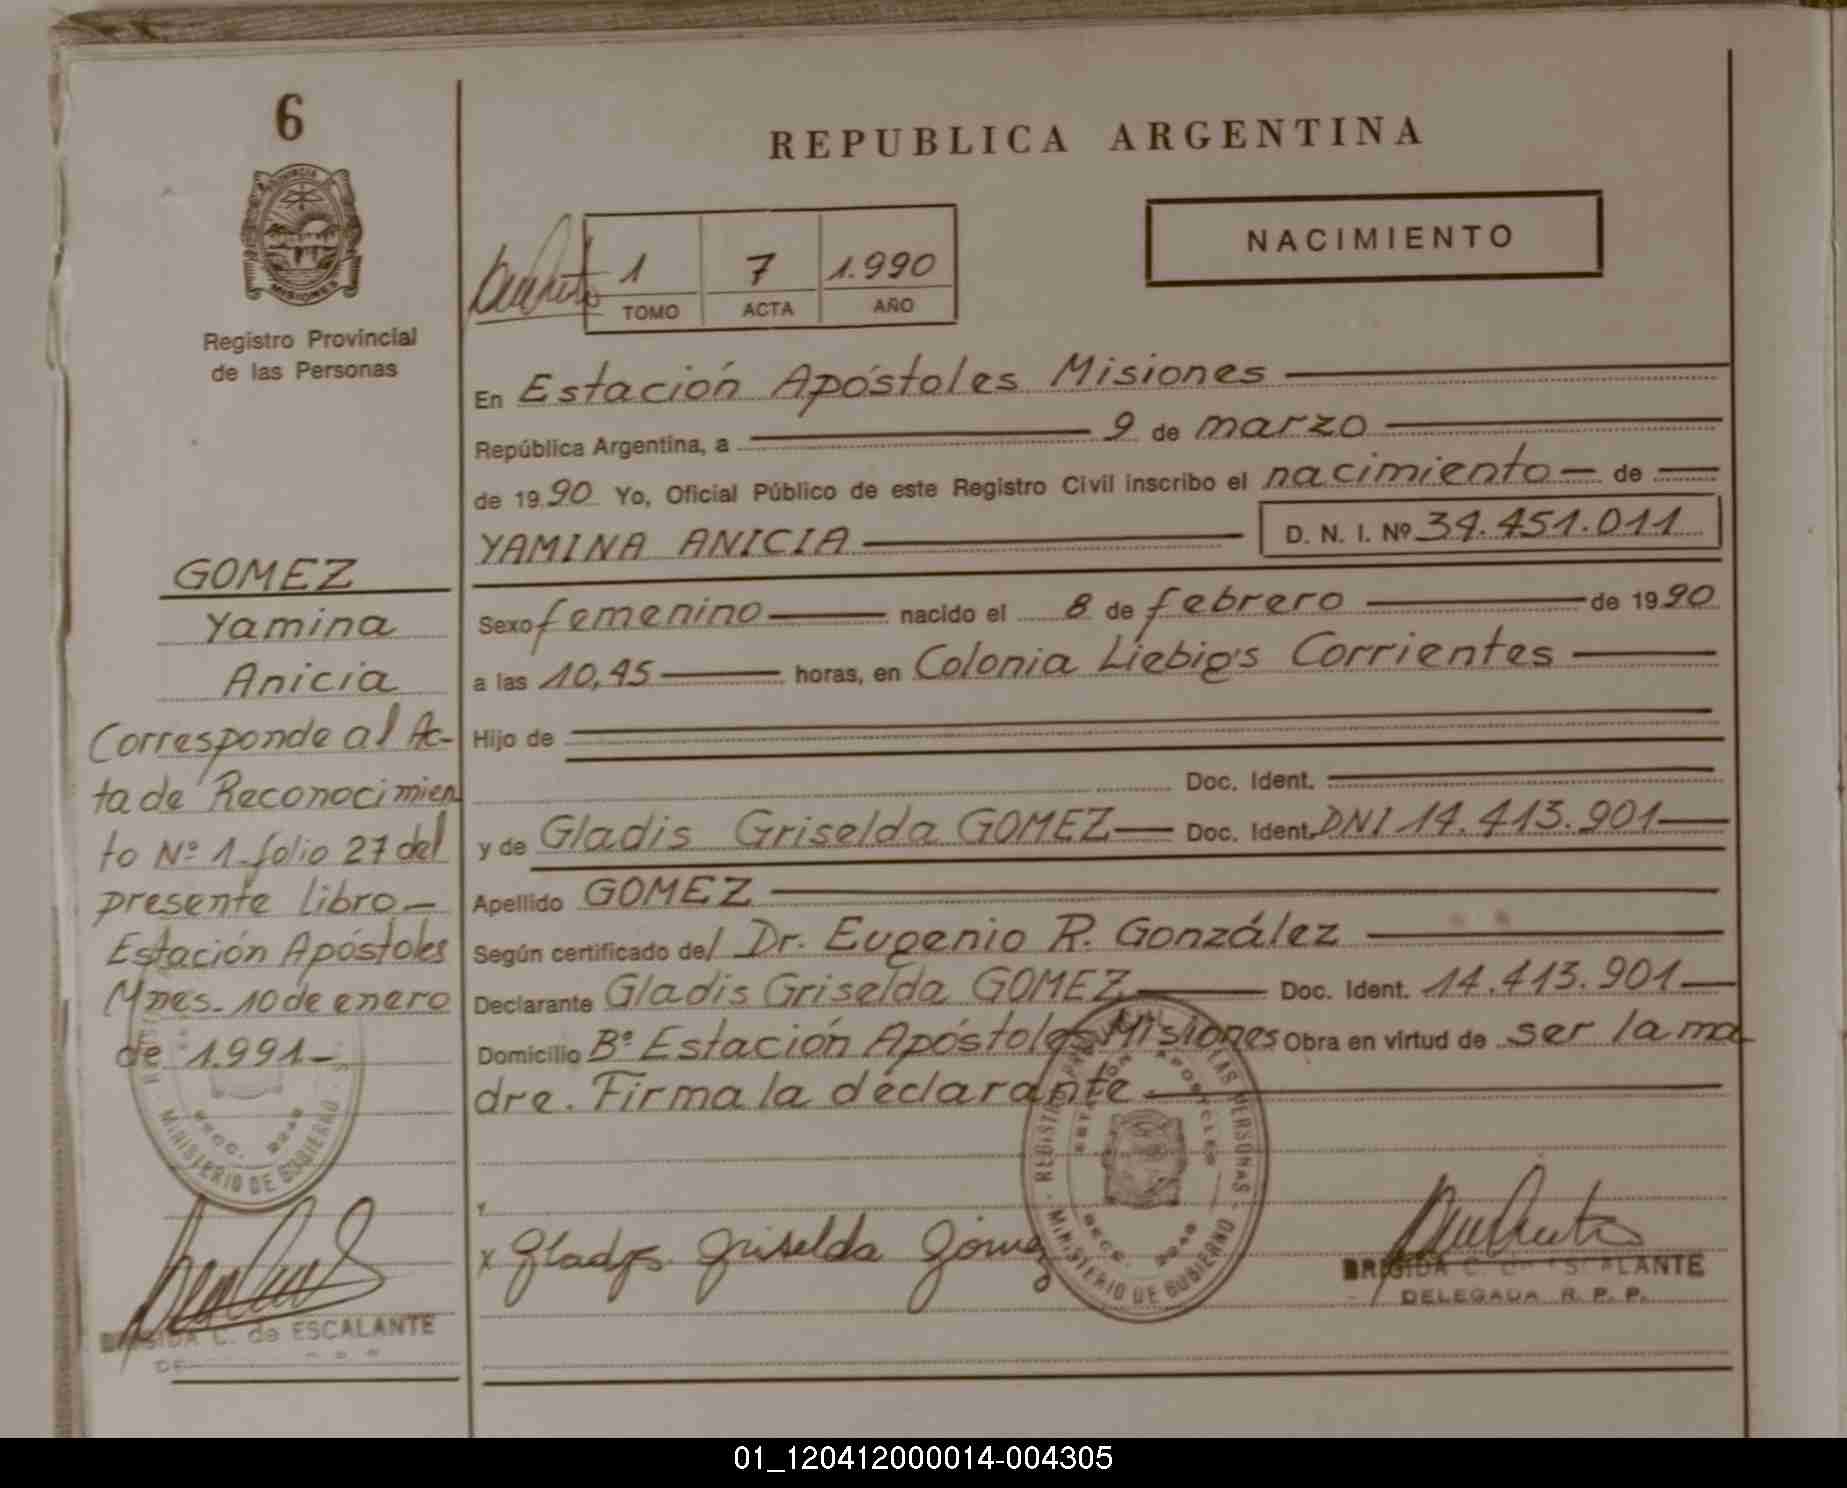 6
REPUBLICA ARGENTINA
NACIMIENTO
1 7 1.990
TOMO ACTA AÑO
PROVINCIA DE
MISIONES
Registro Provincial
de las Personas
GOMEZ
Yamina
Anicia
Corresponde al Ac-
ta de Reconocimien
to Nº 1 folio 27 del
presente libro -
Estación Apóstoles
Mnes. 10 de enero
de 1.991 -
MINISTERIO DE GOBIERNO
BRIGIDA C. de ESCALANTE
En Estación Apóstoles Misiones
República Argentina, a 9 de marzo
de 1990 Yo, Oficial Público de este Registro Civil inscribo el nacimiento - de
YAMINA ANICIA D. N. I. Nº 34.451.011
Sexo femenino nacido el 8 de febrero de 1990
a las 10,45 horas, en Colonia Liebig's Corrientes
Hijo de
Doc. Ident.
y de Gladis Griselda GOMEZ Doc. Ident. DNI 14.413.901
Apellido GOMEZ
Según certificado del Dr. Eugenio R. González
Declarante Gladis Griselda GOMEZ Doc. Ident. 14.413.901
Domicilio Bº Estación Apóstoles Misiones Obra en virtud de ser la ma
dre. Firma la declarante
x Gladys Griselda Gómez
MINISTERIO DE GOBIERNO
BRIGIDA C. de ESCALANTE
DELEGADA R. P. P.
01_120412000014-004305